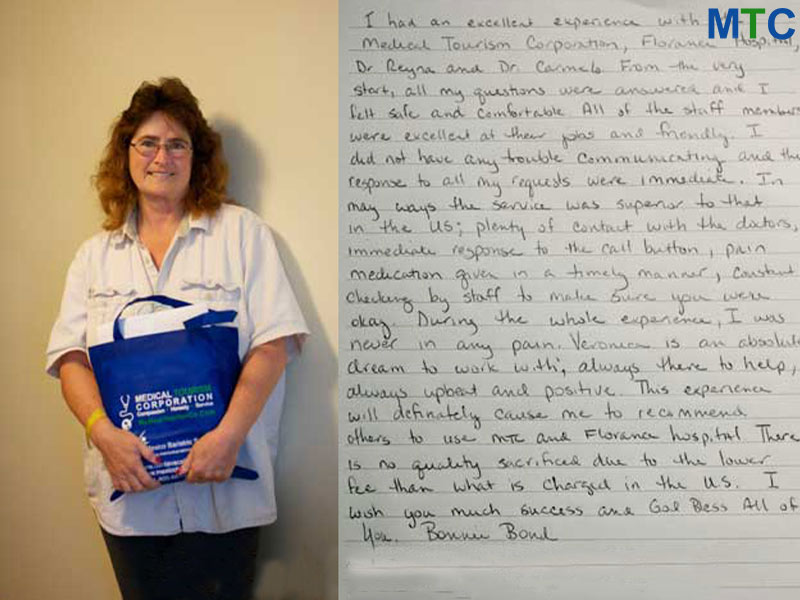 MTC
I had an excellent experience with
Medical Tourism Corporation, Florance Hospital,
Dr Reyna and Dr. Carmelo. From the very
start, all my questions were answered and I
felt safe and comfortable. All of the staff members
were excellent at their jobs and friendly. I
did not have any trouble communicating and the
response to all my requests were immediate. In
may ways the service was superior to that
in the US; plenty of contact with the doctors,
immediate response to the call button, pain
medication given in a timely manner, constant
checking by staff to make sure you were
okay. During the whole experience, I was
never in any pain. Veronica is an absolute
dream to work with; always there to help,
always upbeat and positive. This experience
will definately cause me to recommend
others to use MTC and Florance hospital There
is no quality sacrificed due to the lower
fee than what is charged in the U.S. I
wish you much success and God Bless All of
You. Bonnie Bond
MEDICAL TOURISM
CORPORATION
Compassion Honesty Service